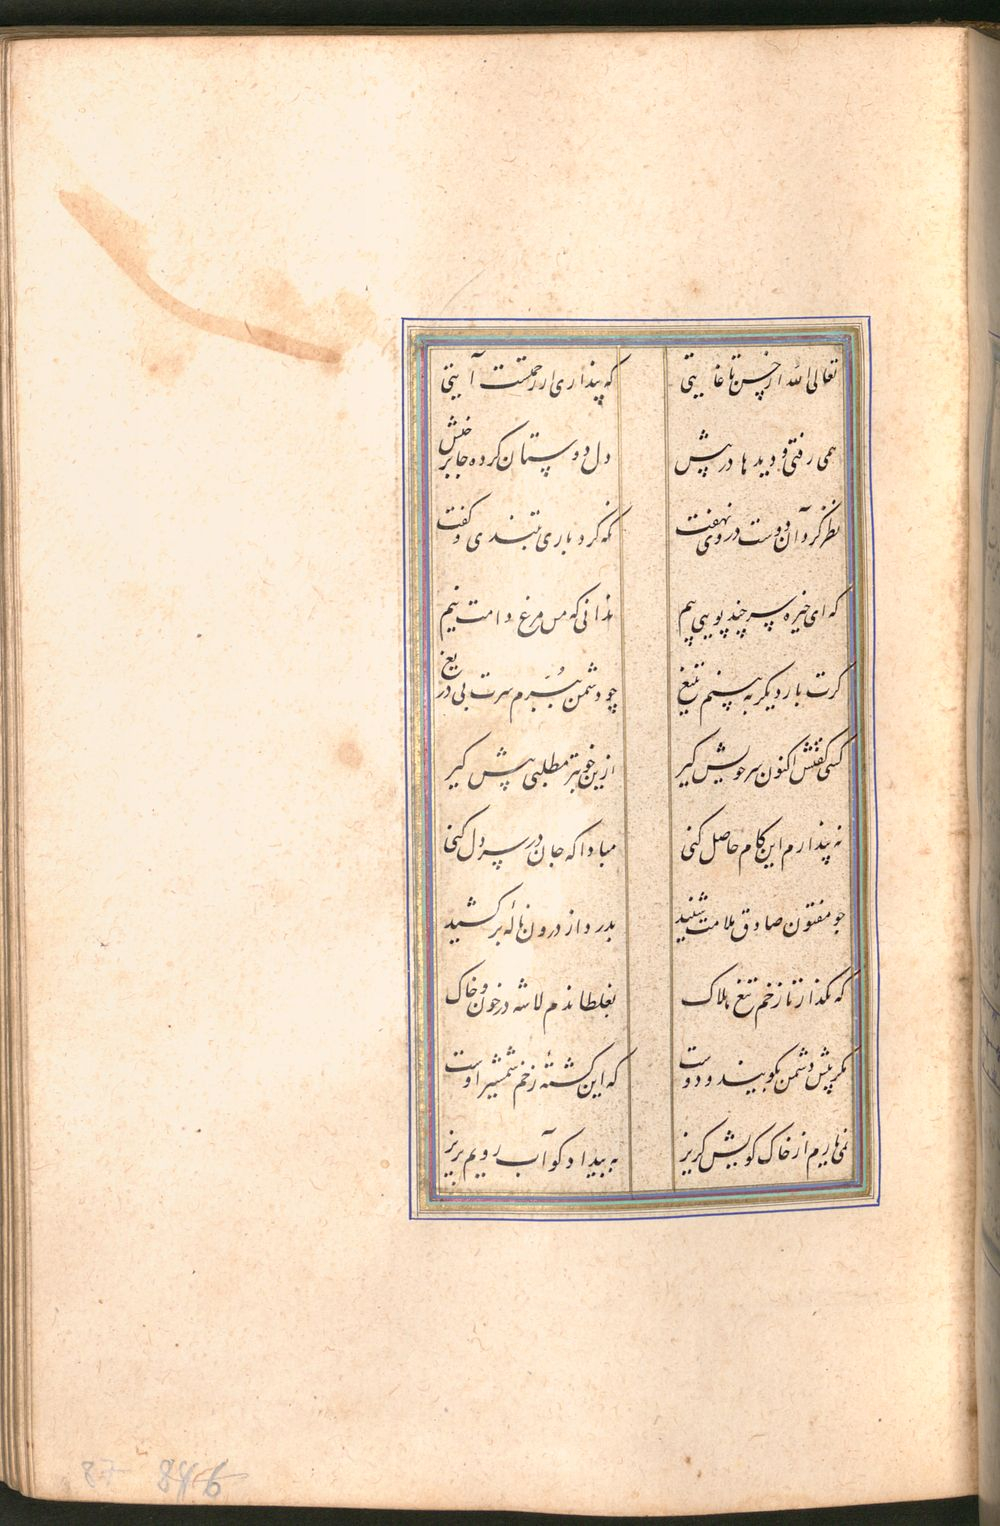 تعالی الله از حسن تا غایتی که پنداری از رحمتست آیتی
همی رفتی و دیدها در پیش دل دوستان کرده جا برخیش
نظر کرد آن دوست در وی نهفت نکه کرد باری بتندی و کفت
که ای خیره سر چند پویی پیم ندانی که من مرغ دامت نیم
کرت بار دیکر به بینم بتیغ چو دشمن ببرم سرت بی دریغ
کسی کفتش اکنون سر خویش کیر ازین خوبتر مطلبی پیش کیر
نه پندارم این کام حاصل کنی مبادا که جان در سر دل کنی
چو مفتون صادق ملامت شنید بدرد از درون نالهٔ برکشید
که بکذار تا زخم تیغ هلاک بغلطاندم لاشه در خون و خاک
مکر پیش دشمن بکویند و دوست که این کشتهٔ زخم شمشیر اوست
نمی بارم از خاک کویش کریز به بیداد کو آب رویم بریز
87 84 6